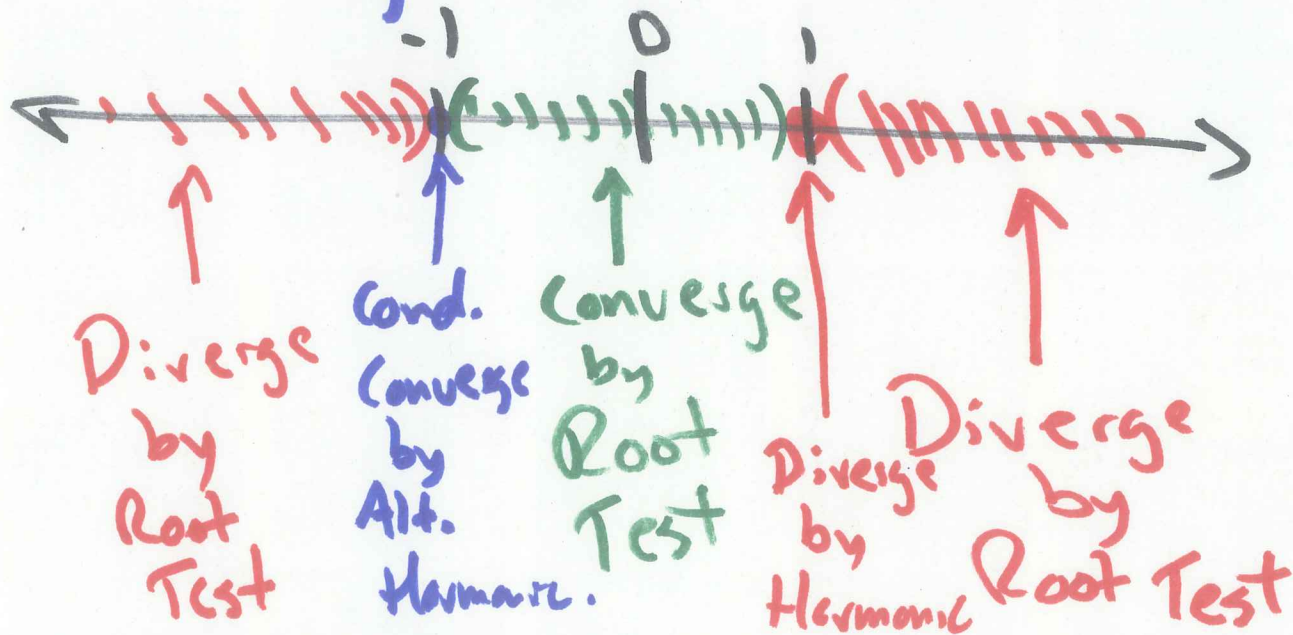 -1 0 1
Diverge
by
Root
Test
Cond.
Converge
by
Alt.
Harmonic.
Converge
by
Root
Test
Diverge
by
Harmonic
Diverge
by
Root Test